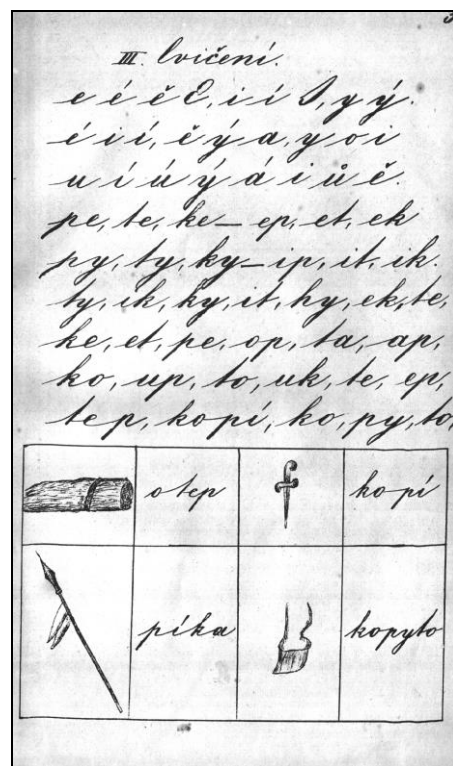 III. Cvičení.
e é ě E, i í I, y ý.
é i í, ě ý a, y o i
u í ú ý á i ů ě.
pe, te, ke — ep, et, ek
py, ty, ky — ip, it, ik.
ty, ik, ky, it, hy, ek, te,
ke, et, pe, op, ta, ap,
ko, up, to, uk, te, ep,
tep, kopí, ko, py, to,
otep kopí
píka kopyto